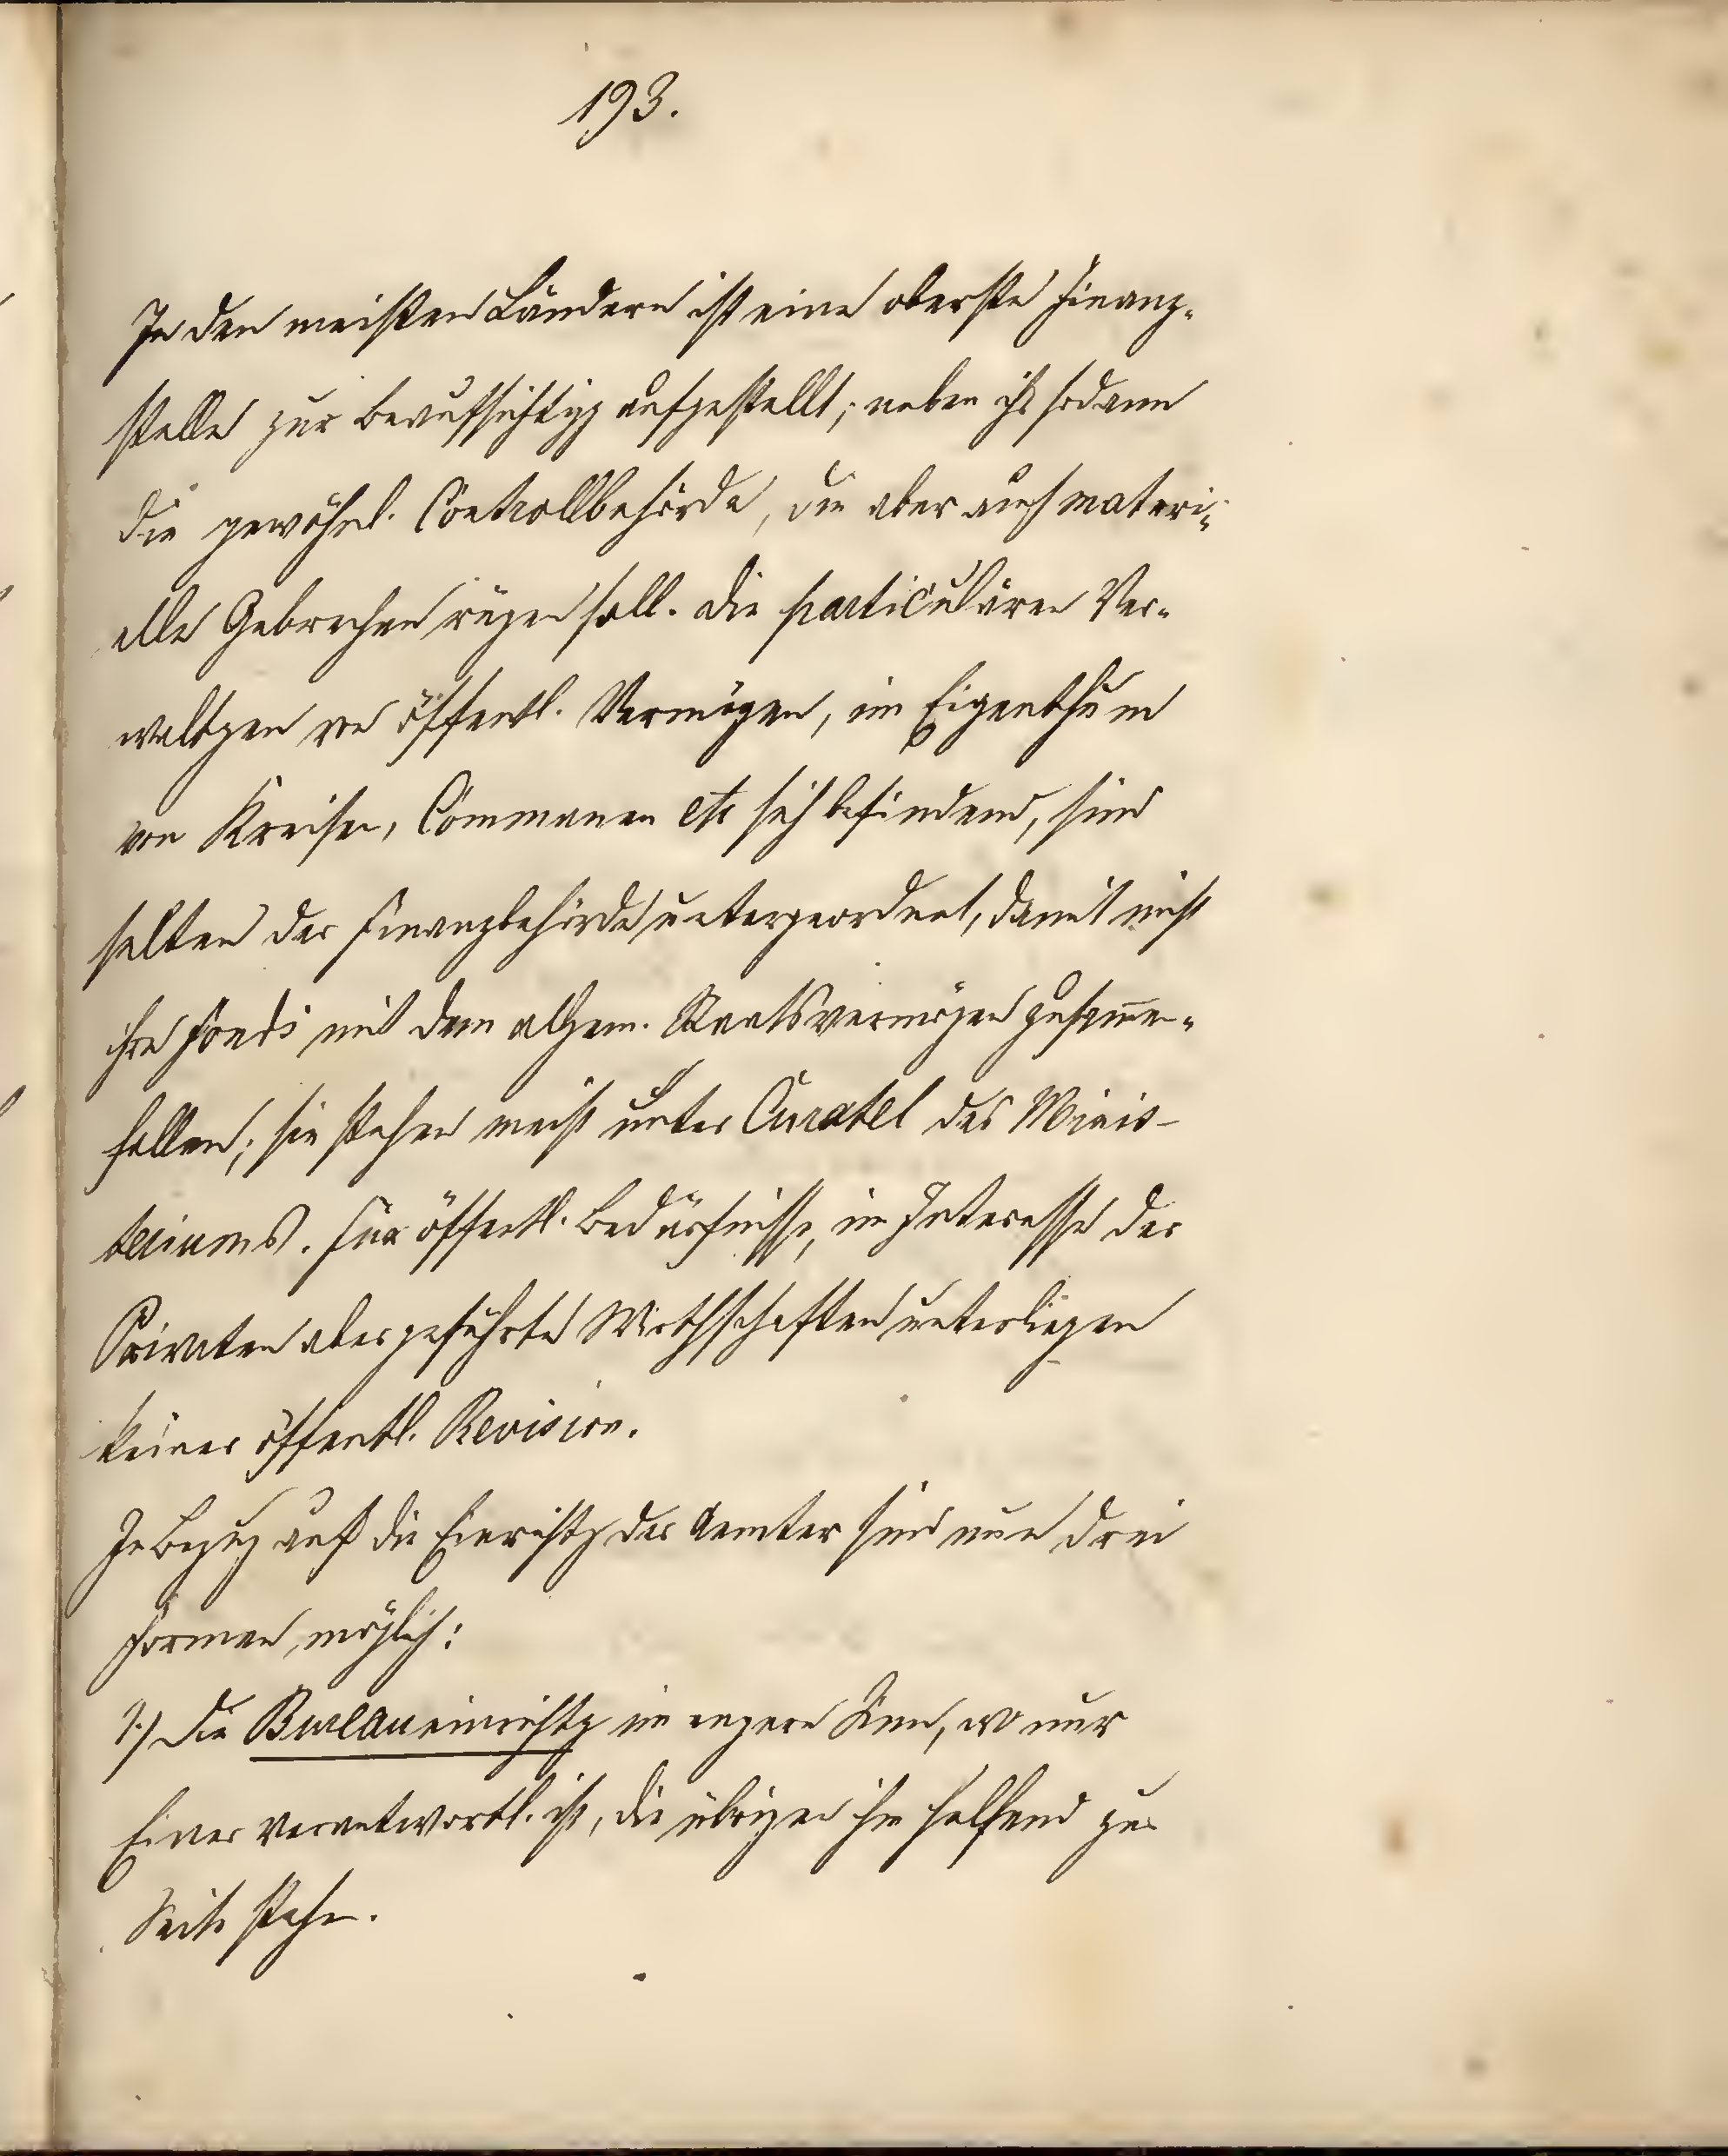 193.
In den meisten Ländern ist eine oberste Finanz-
stelle zur Beaufsichtigg aufgestellt; neben ihr sodann
die gewöhnl. Controllbehörde, die aber auch materi-
elle Gebrechen rügen soll. Die particulären Ver-
waltgen von öffentl. Vermögen, im Eigenthum
von Kreisen, Communen etc sich befindend, sind
selten der Finanzbehörde untergeordnet, damit nicht
ihre Fonds mit dem allgem. Staatsvermögen zusam̄en-
fallen; sie stehen meist unter Curatel des Minis-
teriums. Für öffentl. Bedürfnisse, im Interesse der
Privaten aber geführte Wirthschaften unterliegen
keiner öffentl. Revision.
In Bezug auf die Einrichtg der Aemter sind nun drei
Formen möglich:
1.) Die Bureaueinrichtg im engern Sinn, wo nur
Einer verantwortl. ist, die übrigen ihm helfend zur
Seite stehen.